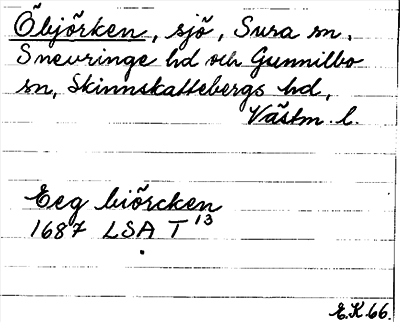 Öbjörken, sjö, Sura sn,
Snevringe hd och Gunnilbo
sn, Skinnskattebergs hd,
Västm. l.
Eeg biörcken
1687 LSA T 13
E.K 66.